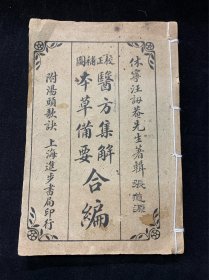 校正補圖
休寧汪訒菴先生著輯 張隨源
醫方集解
本草備要
合編
附湯頭歌訣 上海進步書局印行